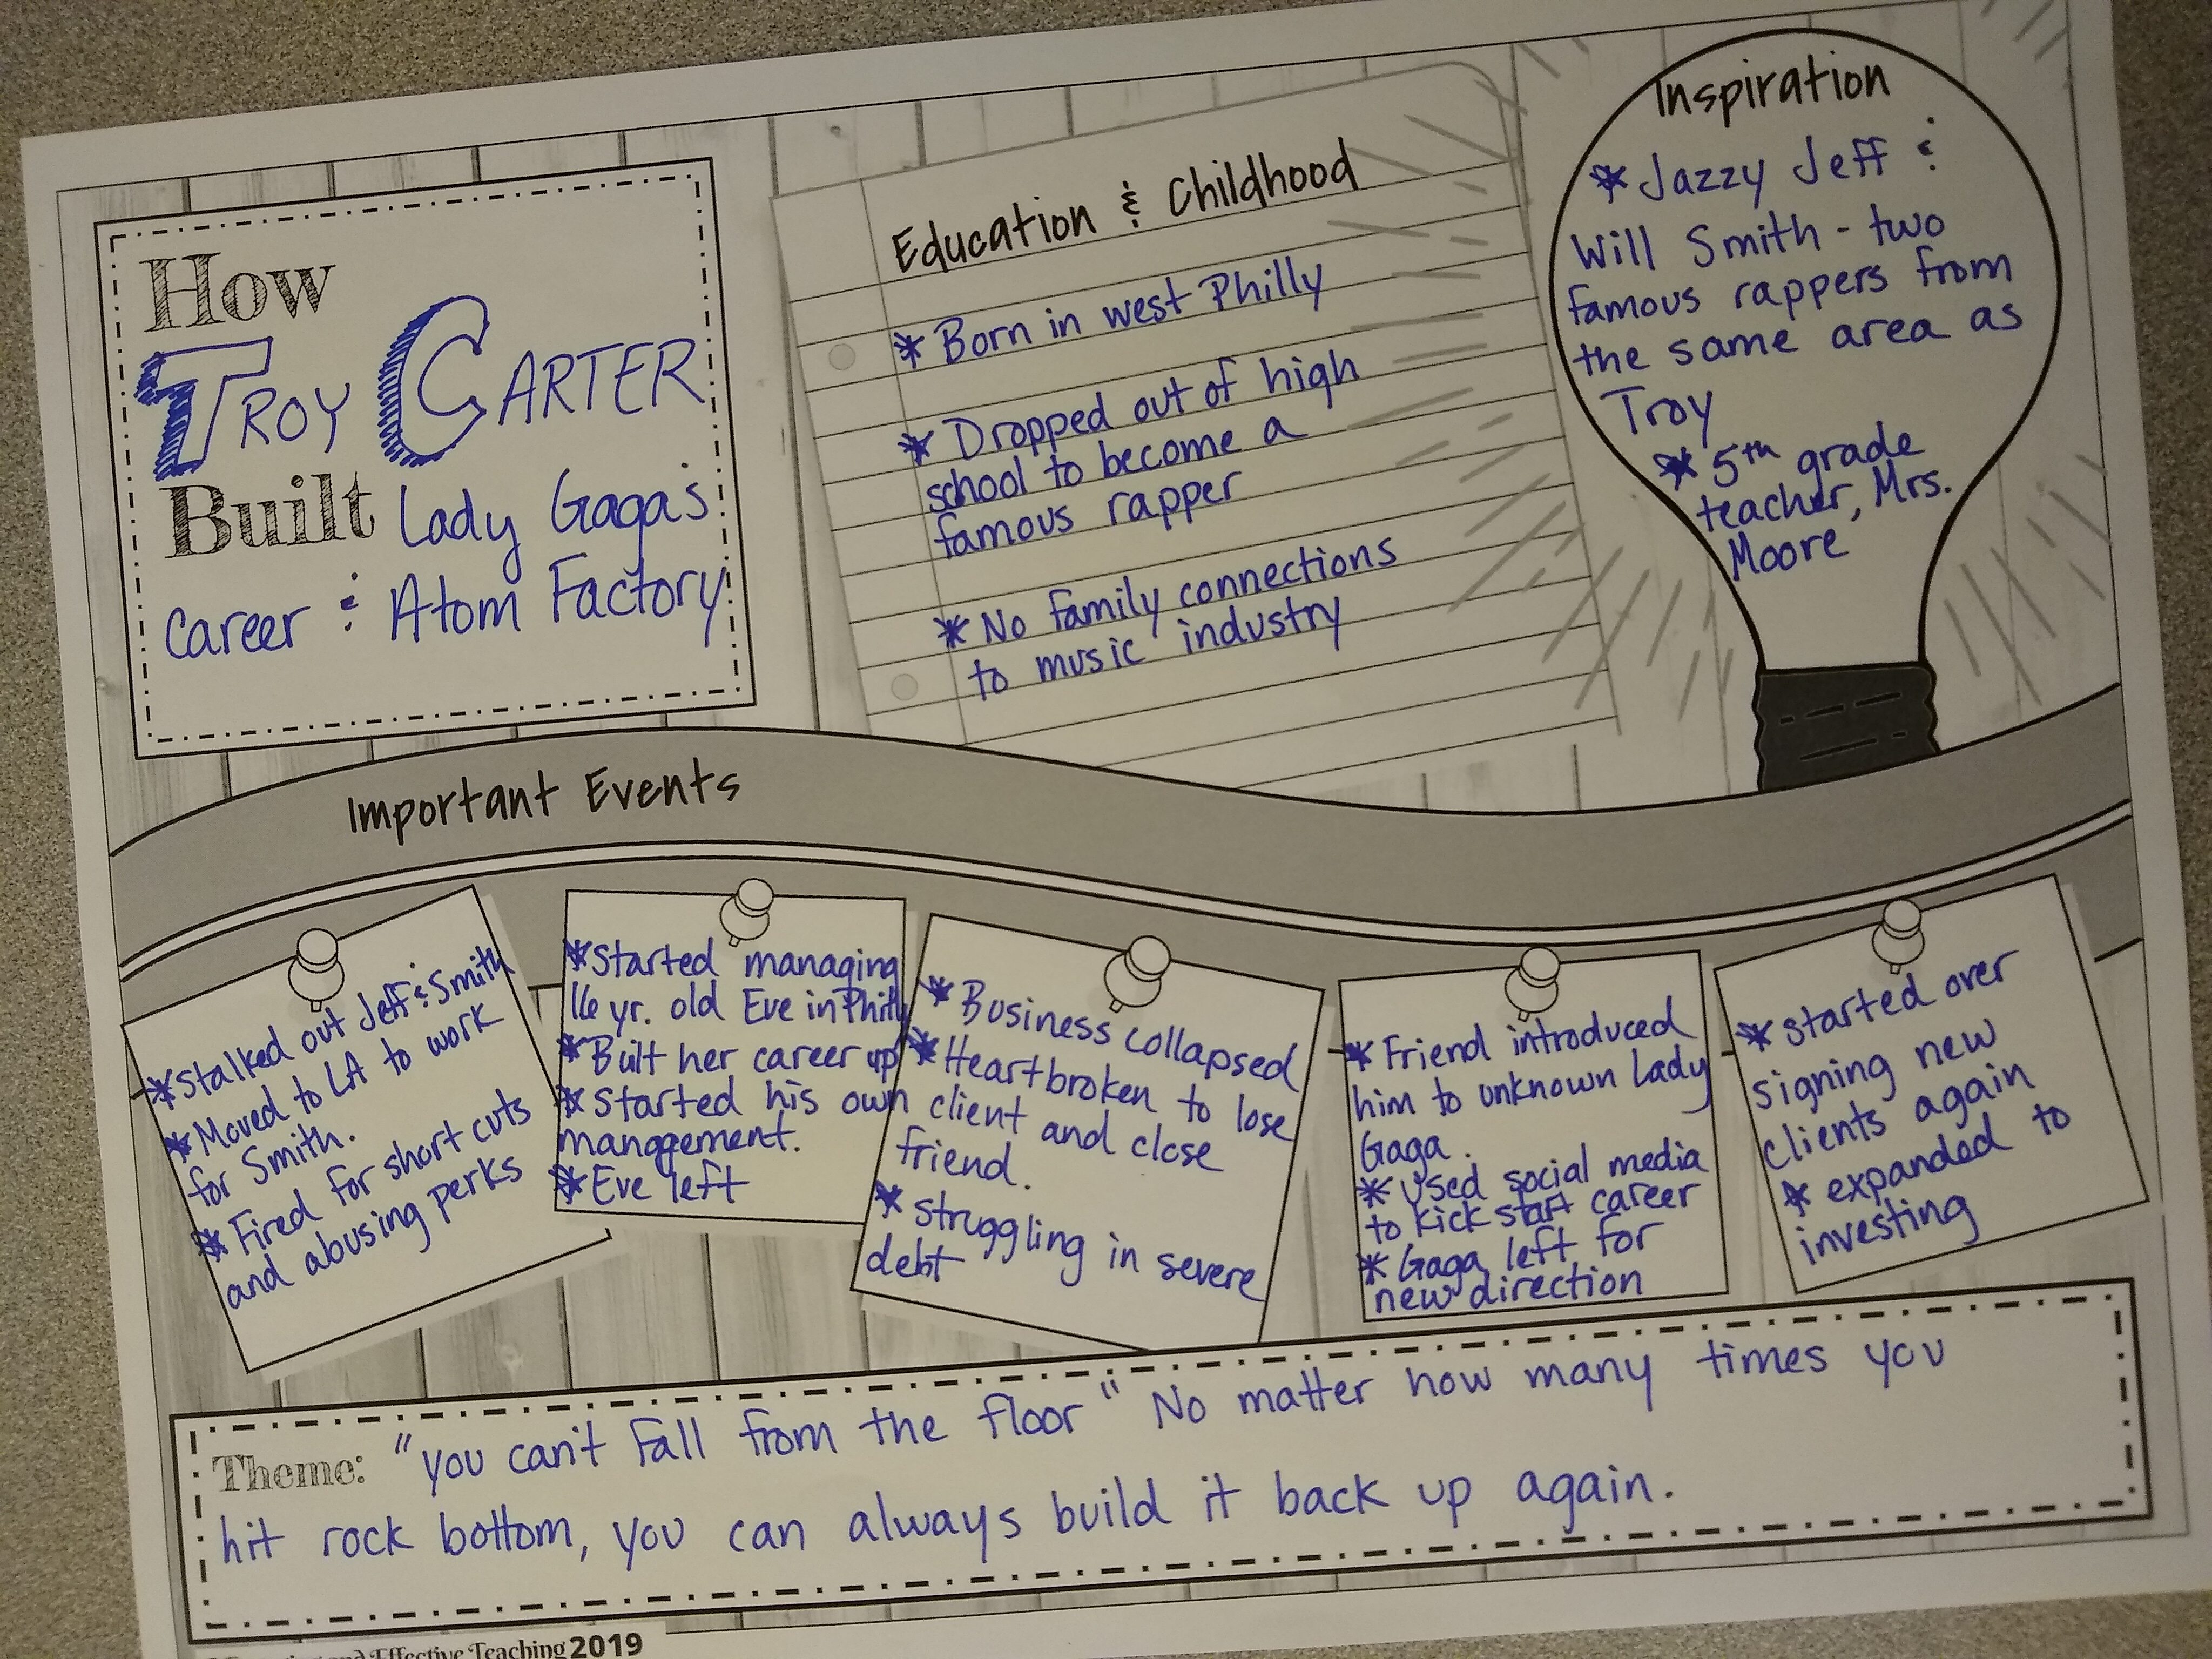 How
TROY CARTER
Built Lady Gaga's
Career & Atom Factory
Education & Childhood
* Born in west Philly
* Dropped out of high
school to become a
famous rapper
* No family connections
to music industry
Inspiration
* Jazzy Jeff &
Will Smith - two
famous rappers from
the same area as
Troy
* 5th grade
teacher, Mrs.
Moore
Important Events
* Stalked out Jeff & Smith
* Moved to LA to work
for Smith.
* Fired for short cuts
and abusing perks
* Started managing
16 yr. old Eve in Philly
* Built her career up
* Started his own
management.
* Eve left
* Business collapsed
* Heartbroken to lose
client and close
friend.
* struggling in severe
debt
* Friend introduced
him to unknown Lady
Gaga.
* Used social media
to kick start career
* Gaga left for
new direction
* started over
signing new
clients again
* expanded to
investing
Theme: "you can't fall from the floor" No matter how many times you
hit rock bottom, you can always build it back up again.
and Effective Teaching 2019